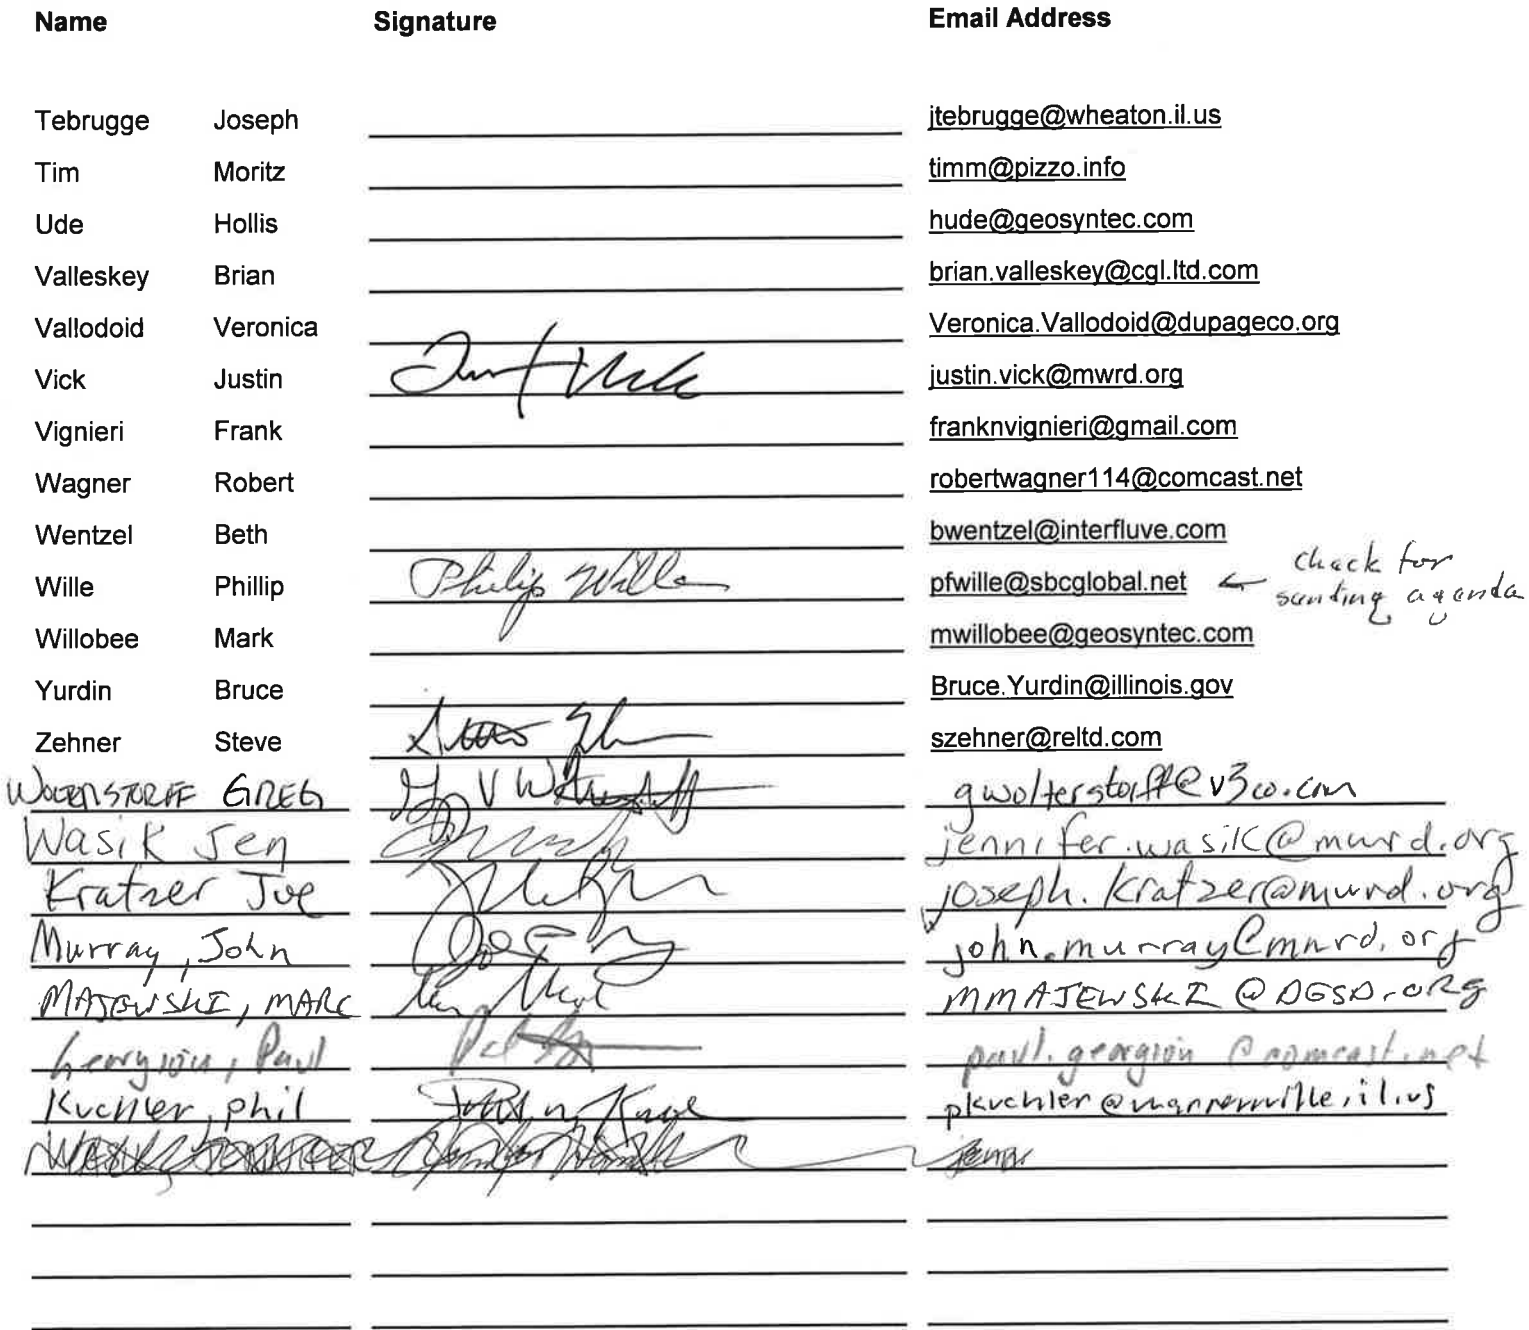 Name Signature Email Address
Tebrugge Joseph jtebrugge@wheaton.il.us
Tim Moritz timm@pizzo.info
Ude Hollis hude@geosyntec.com
Valleskey Brian brian.valleskey@cgl.ltd.com
Vallodoid Veronica Veronica.Vallodoid@dupageco.org
Vick Justin justin.vick@mwrd.org
Vignieri Frank franknvignieri@gmail.com
Wagner Robert robertwagner114@comcast.net
Wentzel Beth bwentzel@interfluve.com
Wille Phillip Philip Wille pfwille@sbcglobal.net ← check for
sending agenda
Willobee Mark mwillobee@geosyntec.com
Yurdin Bruce Bruce.Yurdin@illinois.gov
Zehner Steve szehner@reltd.com
GREG gwolterstorff@v3co.com
Wasik Jen jennifer.wasik@mwrd.org
Kratzer Joe joseph.kratzer@mwrd.org
Murray, John john.murray@mwrd.org
MAJEWSKI, MARC MMAJEWSKI@DGSD.ORG
Georgiou, Paul paul.georgiou@comcast.net
Kuchler, phil pkuchler@warrenville.il.us